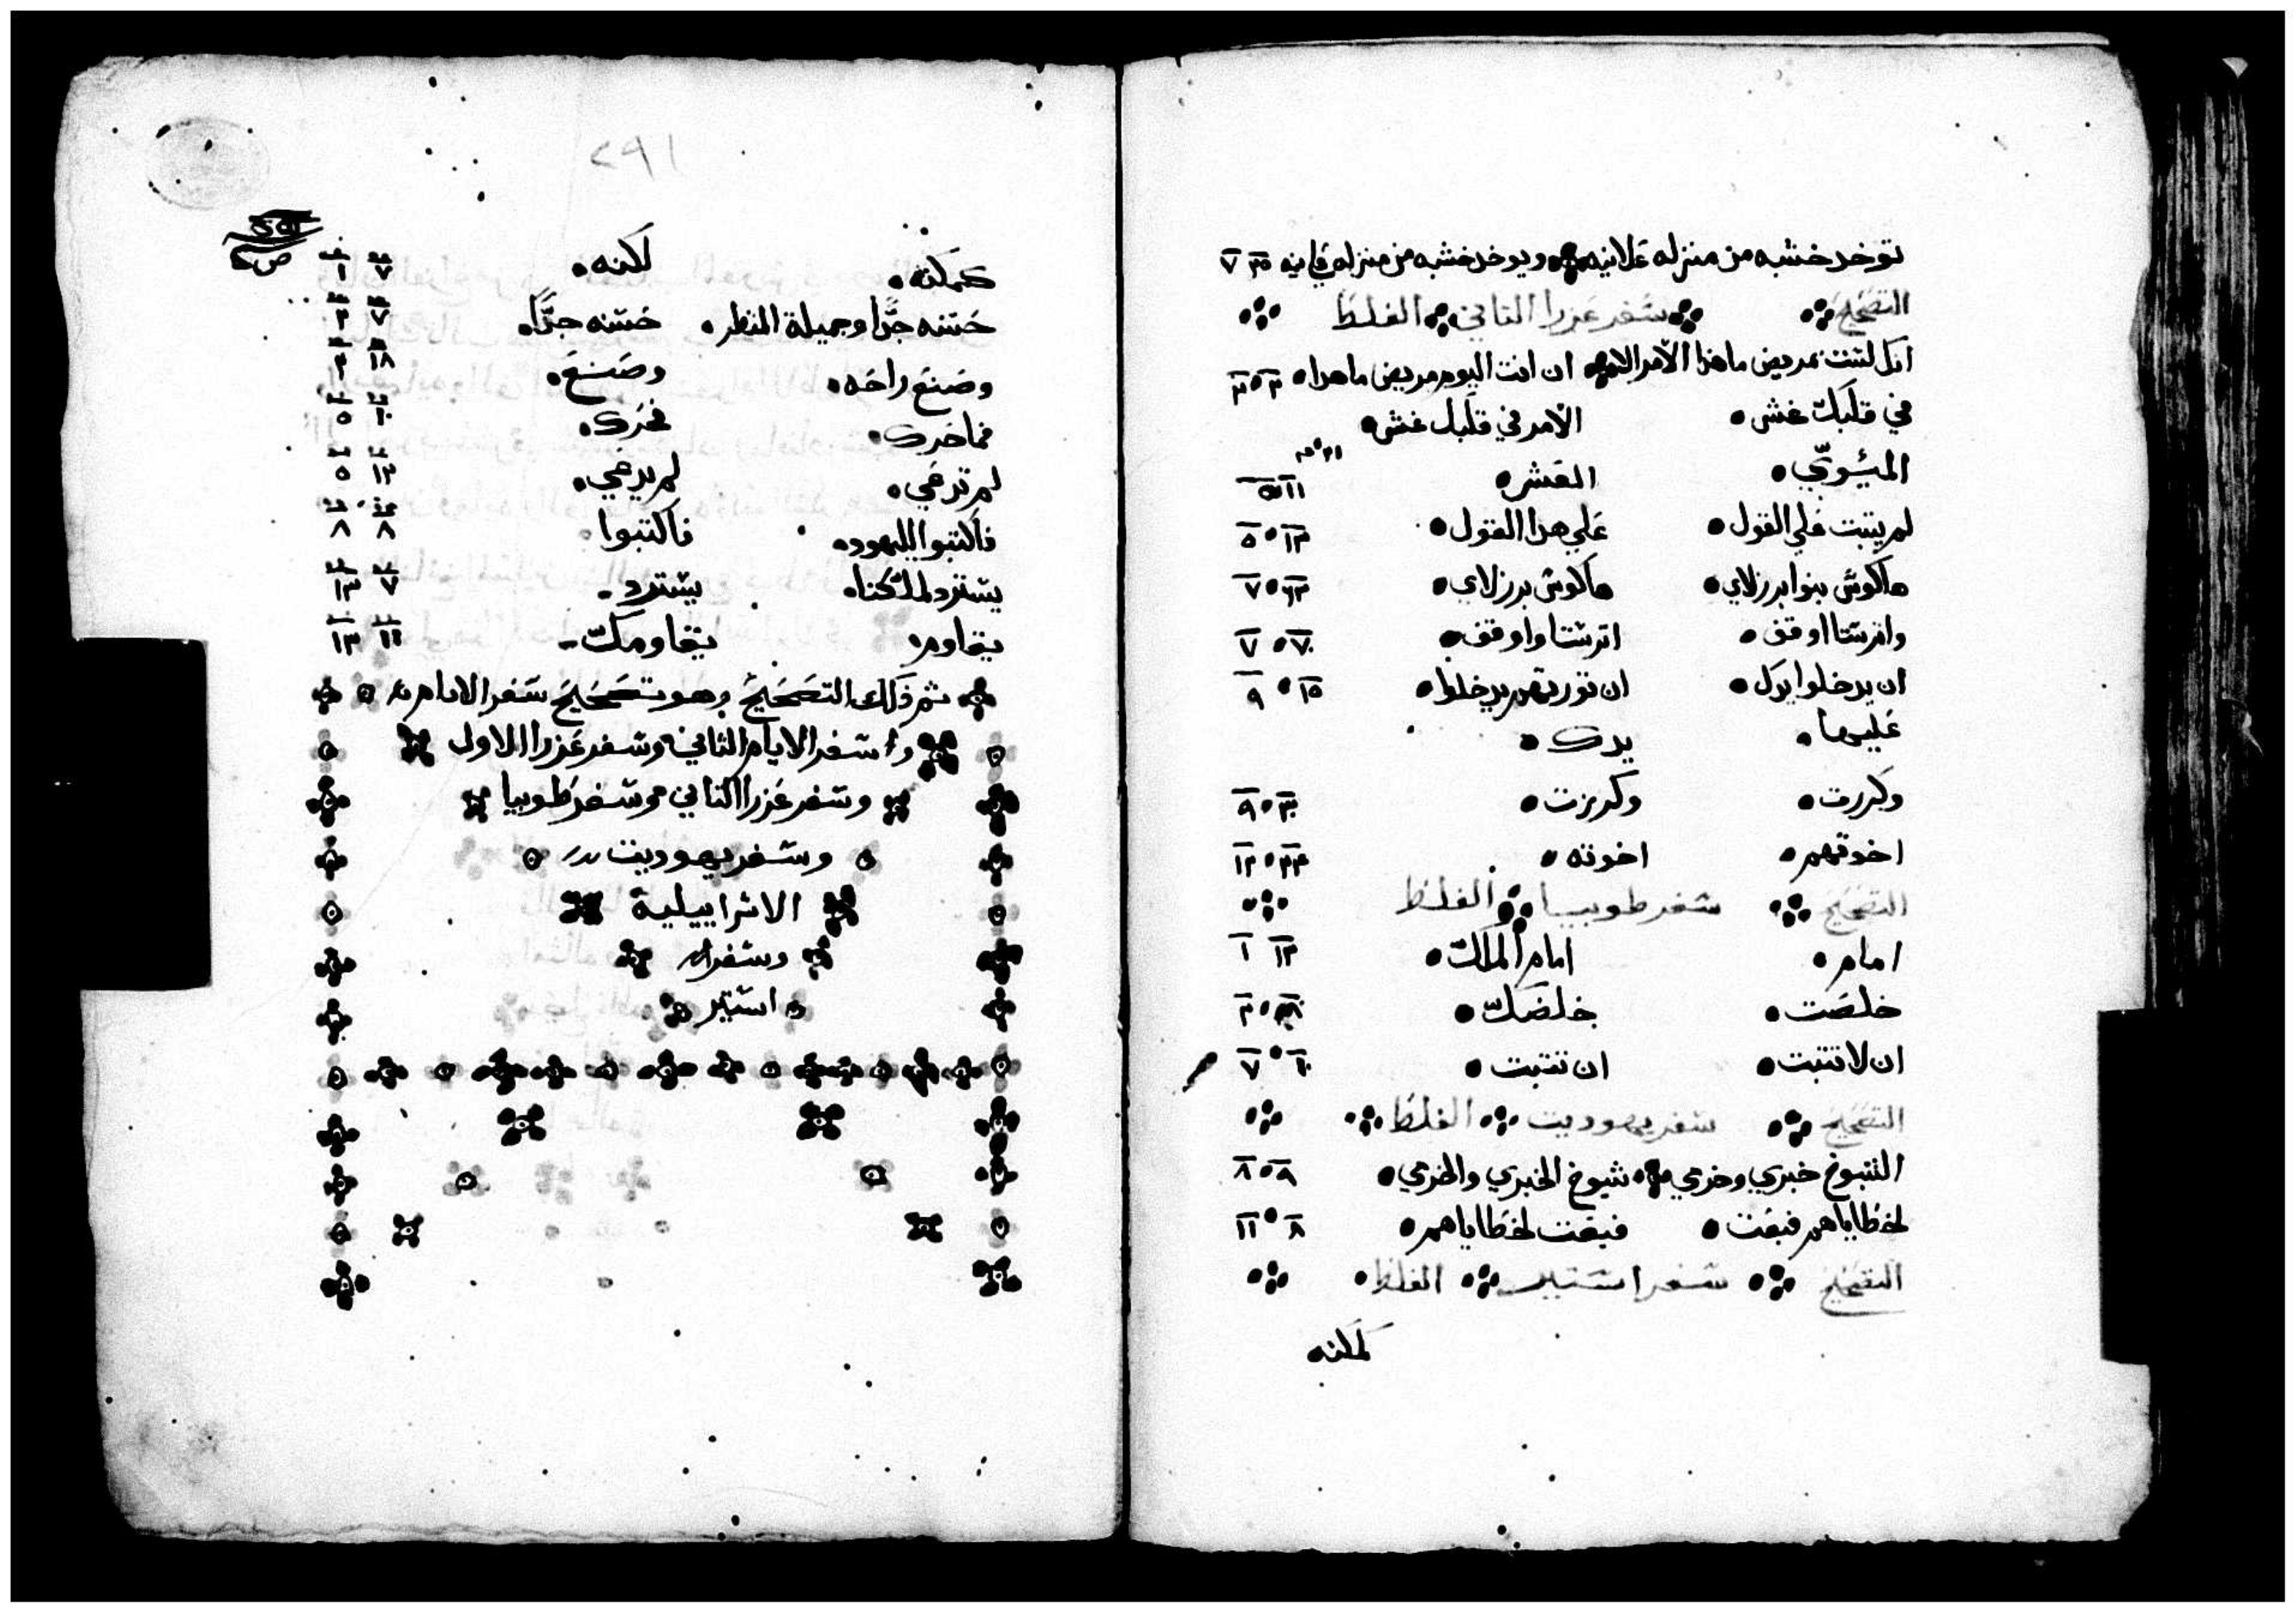 توخد خشبه من منزله علانيه ويوخد خشبه من منزله علانيه ٣٥ ٧
التصحيح سفر عزرا الثاني الغلط
انك لست بمريض ماهذا الامر الا ان انت اليوم مريض ماهدا ٣ ٣
في قلبك غش الامر في قلبك غش
العشر ١١ ٥
لم يتبت علي القول علي هدا القول ١٣ ٥
هاكوش بنوا برزلاي هاكوش برزلاي ٦٣ ٧
واترشتا اوقف اترشتا واوقف ٧٠ ٧
ان يدخلوا يدك ان توريهم يدخلوا ١٥ ٩
عليها يدك
وكررت وكريزت ٣٠ ٩
اخوتهم اخوته ٣٣ ١٣
التصحيح سفر طوبيا الغلط
امام امام الملك ١٣ ١
خلصت خلصك ٣
ان لا تتبت ان تتبت ١٠ ٧
التصحيح سفر يهوديت الغلط
الشيوخ خبري وخرمي شيوخ الخبري والخرمي ٩ ٨
لخطاياهم فبعت فبعت لخطاياهم ٨ ١١
التصحيح سفر استير الغلط
كمكنه
٢٩١
كمكنه لكنه ٧ ١
حسنه جدًا وجميلة المنظر حسنه جدًا ٧ ٢
وصنع راحه وصنع ١٨ ٢
فماخرك فخرك ١٠ ٥
لم تدعي لم يدعي ١٣ ٥
فاكتبوا لليهود فاكتبوا ٨ ٨
يسترد لملكنا يسترد ٧ ١٣
يقاوم يقاومك ١١ ١٣
ثم ذلك التصحيح وهو تصحيح سفر الايام
سفر الايام الثاني وسفر عزرا الاول
وسفر عزرا الثاني وسفر طوبيا
وسفر يهوديت
الاسراييلية
وسفر
استير